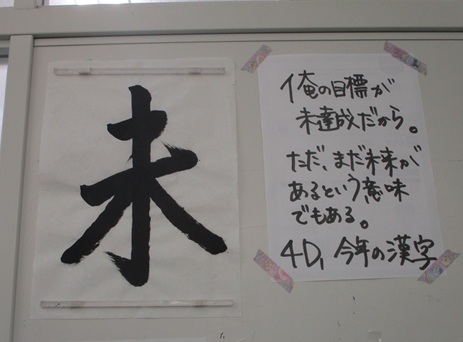 未
俺の目標が
未達成だから。
ただ、まだ未来が
あるという意味
でもある。
4D, 今年の漢字